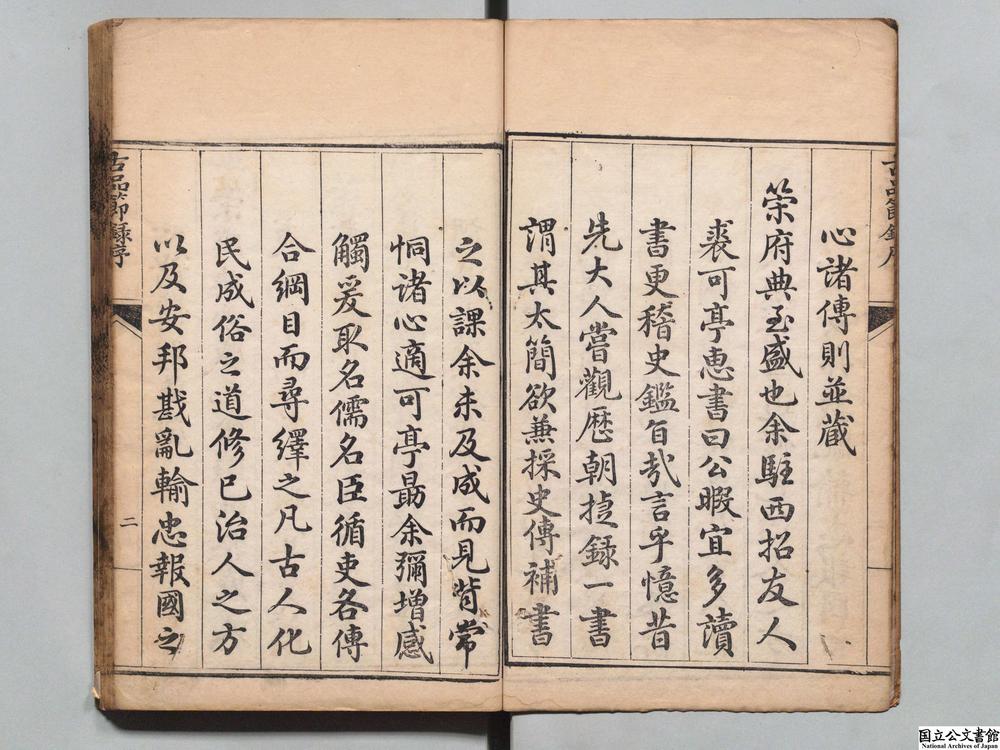 心諸傳則並藏
榮府典至盛也余駐西招友人
裘可亭惠書曰公暇宜多讀
書更稽史鑑旨哉言乎憶昔
先大人嘗觀歷朝捷録一書
謂其太簡欲兼採史傳補書
之以課余未及成而見背常
恫諸心適可亭勗余彌增感
觸爰取名儒名臣循吏各傳
合綱目而尋繹之凡古人化
民成俗之道修己治人之方
以及安邦戡亂輸忠報國之
古品節録序
二
国立公文書館
National Archives of Japan